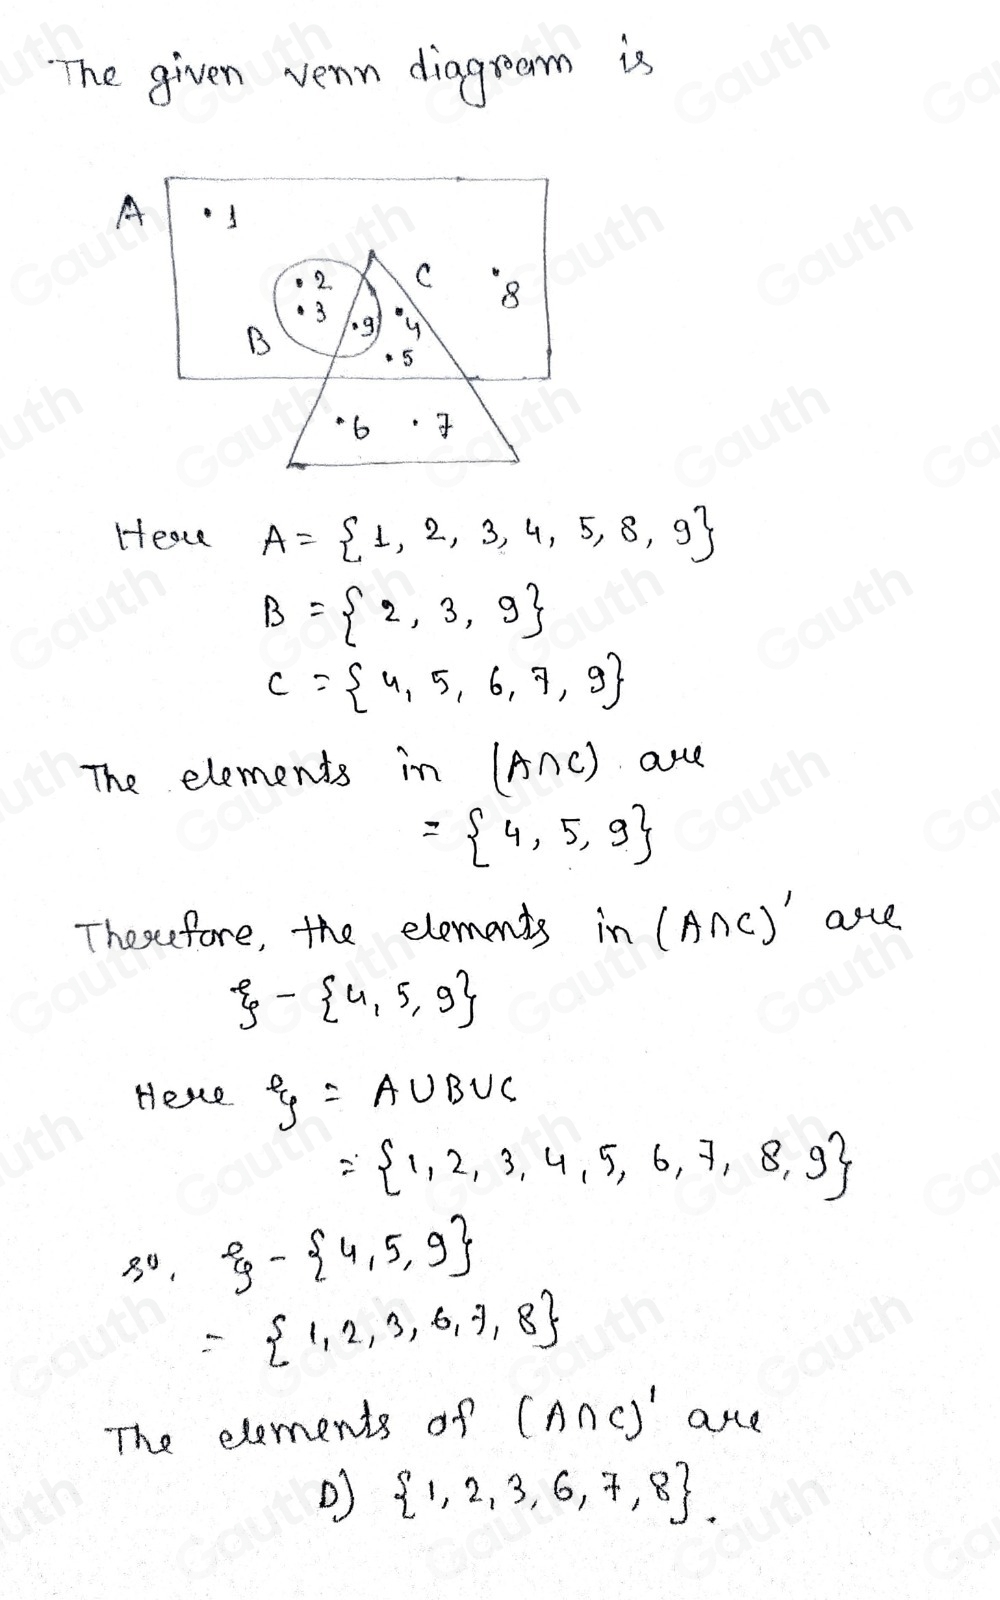 The given venn diagram is
A
• 1
• 2
• 3
• 9
C
• 4
• 5
• 8
B
• 6
• 7
Here A = {1, 2, 3, 4, 5, 8, 9}
B = {2, 3, 9}
C = {4, 5, 6, 7, 9}
The elements in (A∩C) are
= {4, 5, 9}
Therefore, the elements in (A∩C)' are
ξ - {4, 5, 9}
Here ξ = A∪B∪C
= {1, 2, 3, 4, 5, 6, 7, 8, 9}
so, ξ - {4, 5, 9}
= {1, 2, 3, 6, 7, 8}
The elements of (A∩C)' are
D) {1, 2, 3, 6, 7, 8}.
Gauth